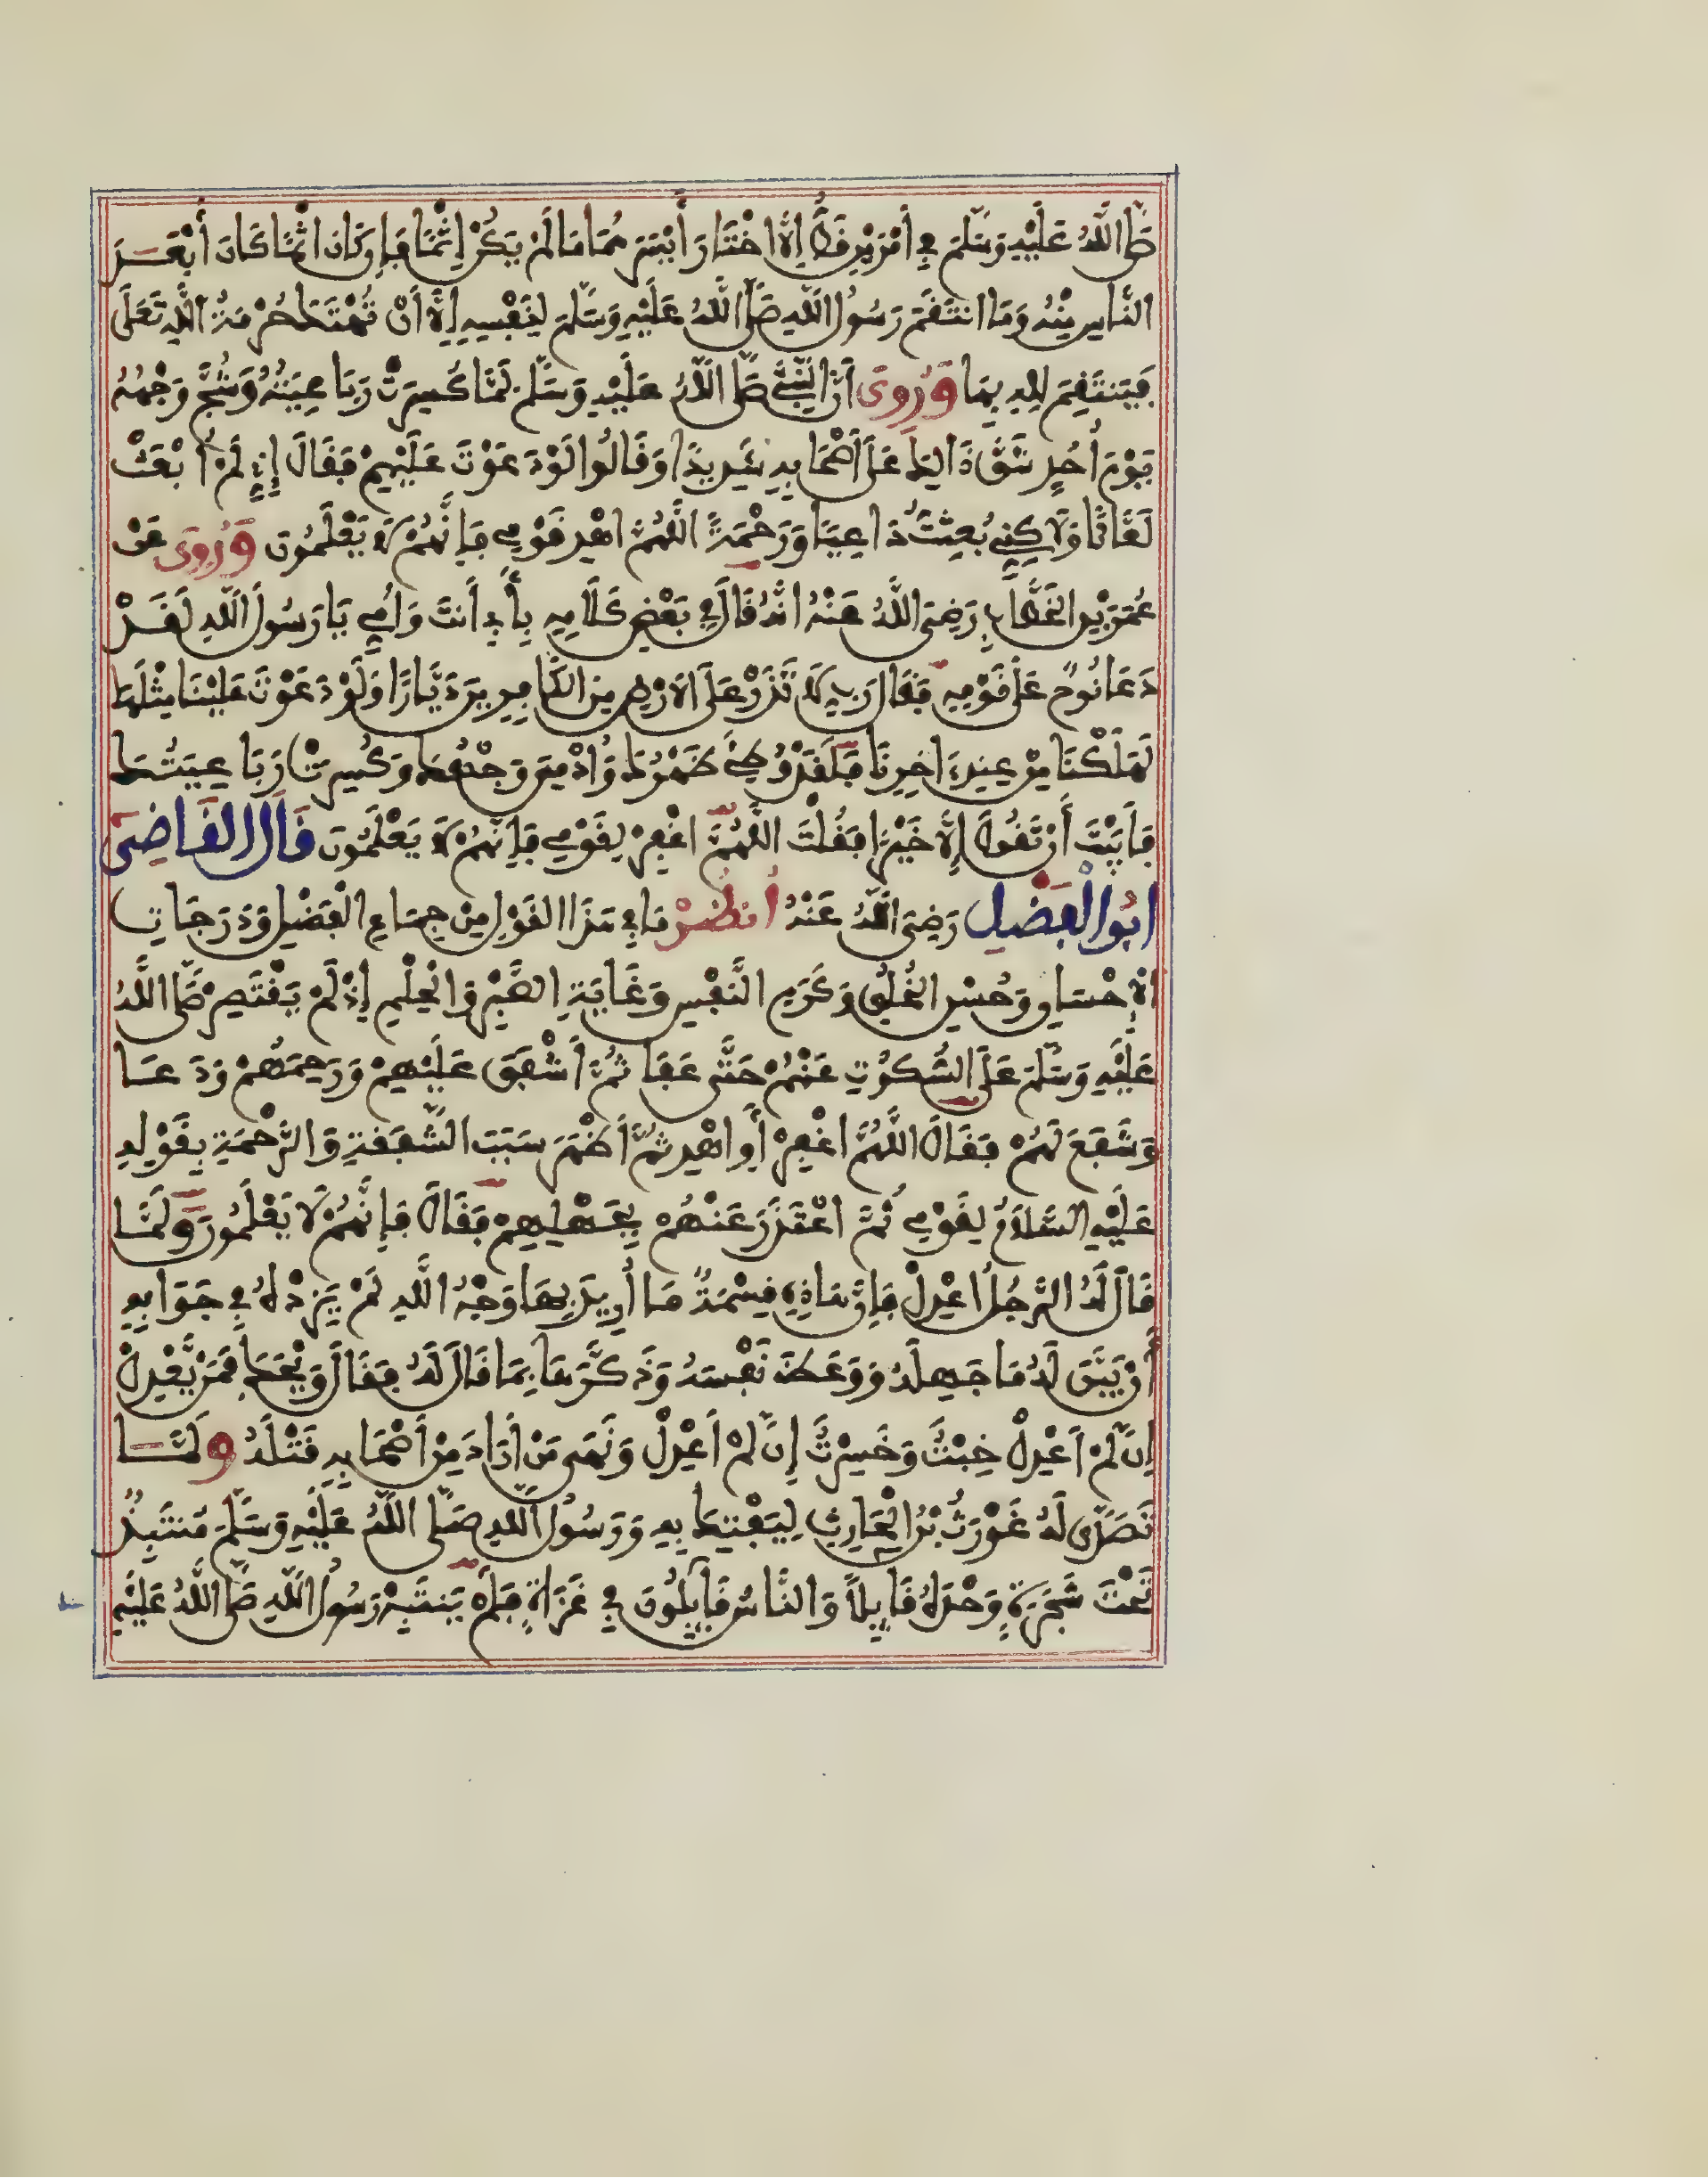 صَلَّى اللَّهُ عَلَيْهِ وَسَلَّمَ فِي أَمْرَيْنِ قَطُّ إِلَّا اخْتَارَ أَيْسَرَهُمَا مَا لَمْ يَكُنْ إِثْمًا فَإِن كَانَ اثْمًا كَانَ أَبْعَدَ
النَّاسِ مِنْهُ وَمَا انتَقَمَ رَسُولُ اللَّهِ صَلَّى اللَّهُ عَلَيْهِ وَسَلَّمَ لِنَفْسِهِ إِلَّا أَنْ تُنْتَهَكَ حُرْمَةُ اللَّهِ تَعَلَى
فَيَنتَقِمَ لِلهِ بِهَا وَرُوِيَ أَنَّ النَّبِيَّ صَلَّى اللَّهُ عَلَيْهِ وَسَلَّمَ لَمَّا كُسِرَتْ رَبَاعِيَتُهُ وَشُجَّ وَجْهُهُ
يَوْمَ أُحُدٍ شَقَّ ذَالِكَ عَلَى أَصْحَابِهِ شَدِيدًا وَقَالُوا لَوْ دَعَوْتَ عَلَيْهِمْ فَقَالَ إِنِّي لَمْ أُبْعَثْ
لَعَّانًا وَلَاكِنِّي بُعِثْتُ دَاعِيًا وَرَحْمَةً اللَّهُمَّ اهْدِ قَوْمِي فَإِنَّهُمْ لَا يَعْلَمُونَ وَرُوِيَ عَنْ
عُمَرَ بْنِ الخَطَّابِ رَضِيَ اللَّهُ عَنْهُ انَّهُ قَالَ فِي بَعْضِ كَلَامِهِ بِأَبِي أَنتَ وَأُمِّي يَا رَسُولَ اللَّهِ لَقَدْ
دَعَا نُوحٌ عَلَى قَوْمِهِ فَقَالَ رَبِّ لَا تَذَرْ عَلَى الَارْضِ مِنَ الكَافِرِينَ دَيَّارًا وَلَوْ دَعَوْتَ عَلَيْنَا مِثْلَهَا
لَهَلَكْنَا مِنْ عِندِ ءَاخِرِنَا فَلَقَدْ وُطِئَ ظَهْرُكَ وَأُدْمِيَ وَجْهُكَ وَكُسِرَتْ رَبَاعِيَتُكَ
فَأَبَيْتَ أَن تَقُولَ إِلَّا خَيْرًا فَقُلْتَ اللَّهُمَّ اغْفِرْ لِقَوْمِي فَإِنَّهُمْ لَا يَعْلَمُونَ قَالَ القَاضِيَ
ابُو الْفَضْلِ رَضِيَ اللَّهُ عَنْهُ أُنظُرْ مَا فِي هَذَا القَوْلِ مِنْ جِمَاعِ الْفَضْلِ وَدَرَجَاتِ
الْإِحْسَانِ وَحُسْنِ الخُلُقِ وَكَرَمِ النَّفْسِ وَغَايَةِ الصَّبْرِ وَالْحِلْمِ إِذْ لَمْ يَقْتَصِرْ صَلَّى اللَّهُ
عَلَيْهِ وَسَلَّمَ عَلَى السُّكُوتِ عَنْهُمْ حَتَّى عَفَا ثُمَّ أَشْفَقَ عَلَيْهِمْ وَرَحِمَهُمْ وَدَعَا
وَشَفَعَ لَهُمْ فَقَالَ اللَّهُمَّ اغْفِرْ أَوِ اهْدِ ثُمَّ أَظْهَرَ سَبَبَ الشَّفَقَةِ وَالرَّحْمَةِ بِقَوْلِهِ
عَلَيْهِ السَّلَامُ لِقَوْمِي ثُمَّ اعْتَذَرَ عَنْهُمْ بِجَهْلِهِمْ فَقَالَ فَإِنَّهُمْ لَا يَعْلَمُونَ وَلَمَّا
قَالَ لَهُ الرَّجُلُ اعْدِلْ فَإِنَّ هَاذِهِ قِسْمَةٌ مَا أُرِيدَ بِهَا وَجْهُ اللَّهِ لَمْ يَزِدْهُ فِي جَوَابِهِ
أَن بَيَّنَ لَهُ مَا جَهِلَهُ وَوَعَظَ نَفْسَهُ وَذَكَّرَهَا بِمَا قَالَ لَهُ فَقَالَ وَيْحَكَ فَمَن يَّعْدِلْ
إِن لَّمْ أَعْدِلْ خِبْتُ وَخَسِرْتُ إِن لَّمْ أَعْدِلْ وَنَهَى مَنْ أَرَادَ مِنْ أَصْحَابِهِ قَتْلَهُ وَلَمَّا
تَصَدَّى لَهُ غَوْرَثُ بْنُ الْحَارِثِ لِيَفْتِكَ بِهِ وَرَسُولُ اللَّهِ صَلَّى اللَّهُ عَلَيْهِ وَسَلَّمَ مُنتَبِذٌ
تَحْتَ شَجَرَةٍ وَحْدَهُ قَايِلًا وَالنَّاسُ قَايِلُونَ فِي غَزَاةٍ فَلَمْ يَنتَبِهْ رَسُولُ اللَّهِ صَلَّى اللَّهُ عَلَيْهِ